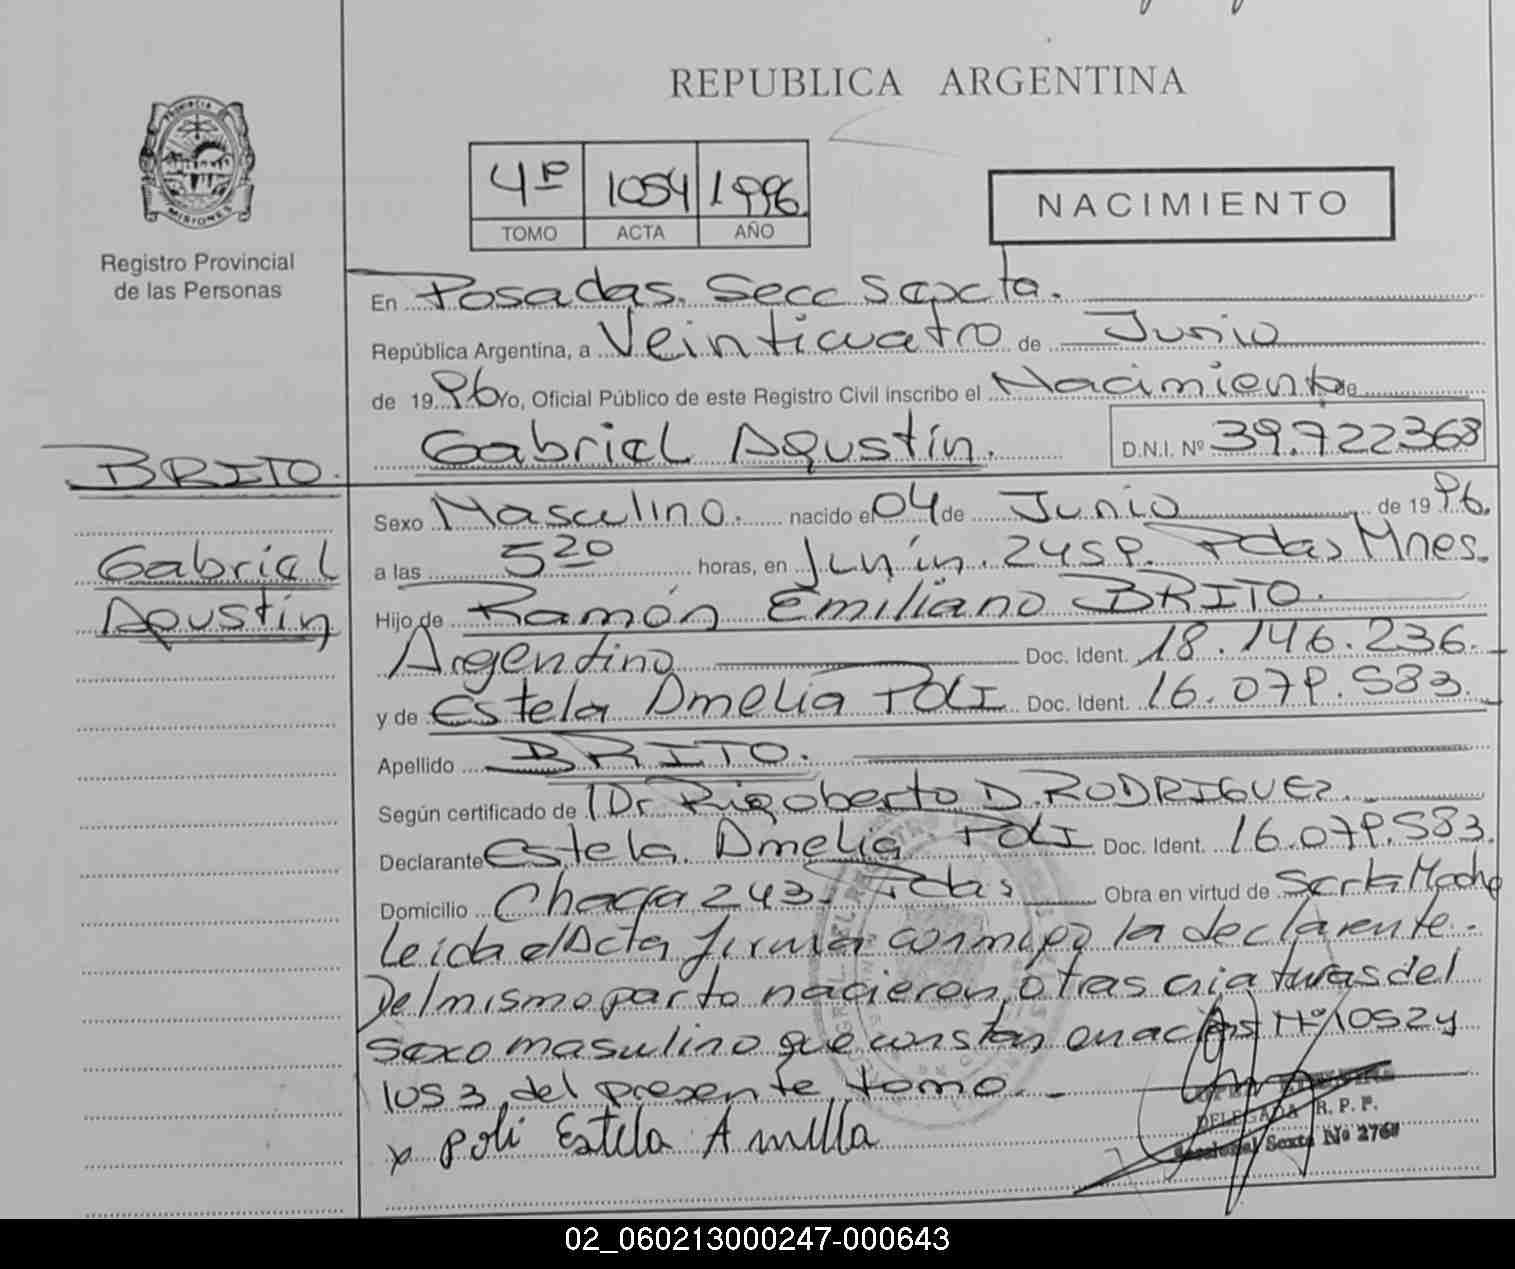 REPUBLICA ARGENTINA
PROVINCIA
MISIONES
Registro Provincial
de las Personas
4º 1054 1996
TOMO ACTA AÑO
NACIMIENTO
En Posadas. Secc Sexta.
República Argentina, a Veinticuatro de Junio
de 1996 Yo, Oficial Público de este Registro Civil inscribo el Nacimiento de
Gabriel Agustín. D.N.I. Nº 39.722368
BRITO.
Gabriel
Agustín
Sexo Masculino. nacido el 04 de Junio de 1996.
a las 5 20 horas, en Junín. 2459. Pdas Mnes.
Hijo de Ramón Emiliano BRITO.
Argentino Doc. Ident. 18.146.236.
y de Estela Amelia POLI Doc. Ident. 16.079.583.
Apellido BRITO.
Según certificado de Dr Rigoberto D. RODRIGUEZ.
Declarante Estela Amelia POLI Doc. Ident. 16.079.583.
Domicilio Chaca 243. Pdas Obra en virtud de Ser la Madre
Leida el Acta firma conmigo la declarente.
Del mismo parto nacieron otras criaturas del
sexo masculino que constan en actas Nº 1052 y
1053 del presente tomo.
x Poli Estela Amelia
DELEGADA R. P. P.
Seccional Sexta Nº 276
02_060213000247-000643